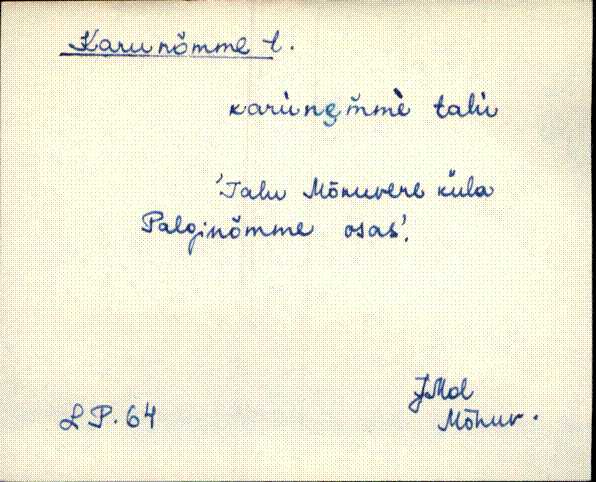 Karunõmme t.
karùnęm̆mè talù
'Talu Mõhuvere küla
Palginõmme osas'.
JMd
L P. 64
Mõhuv.